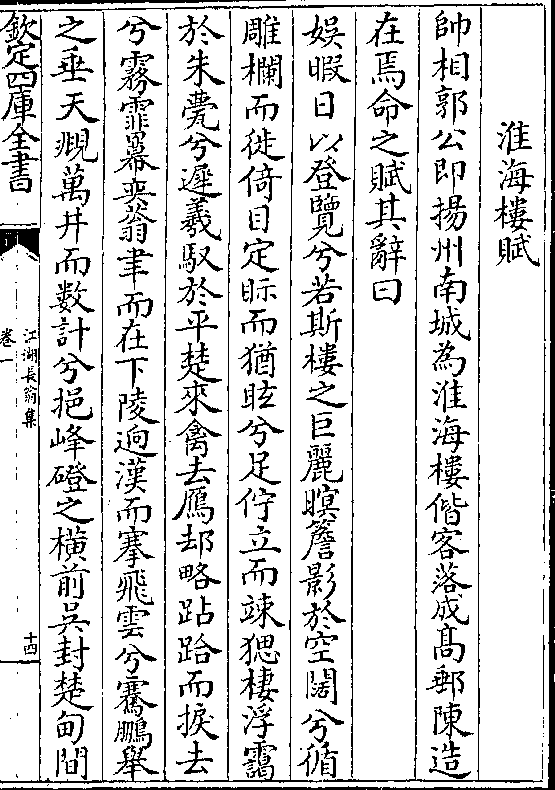 淮海樓賦
帥相郭公即揚州南城為淮海樓偕客落成髙郵陳造
在焉命之賦其辭曰
娯暇日以登覽兮若斯樓之巨麗瞑簷影於空闊兮循
雕欄而徙倚目定眎而猶眩兮足佇立而竦狵棲浮靄
於朱甍兮遲羲馭於平楚來禽去鴈却略跕跲而捩去
兮霧霏羃 翁聿而在下陵逈漢而搴飛雲兮鶱鵬舉
之垂天覝萬井而数計兮挹峰磴之橫前吳封楚甸間
欽定四庫全書
江湖長翁集
卷一
十四